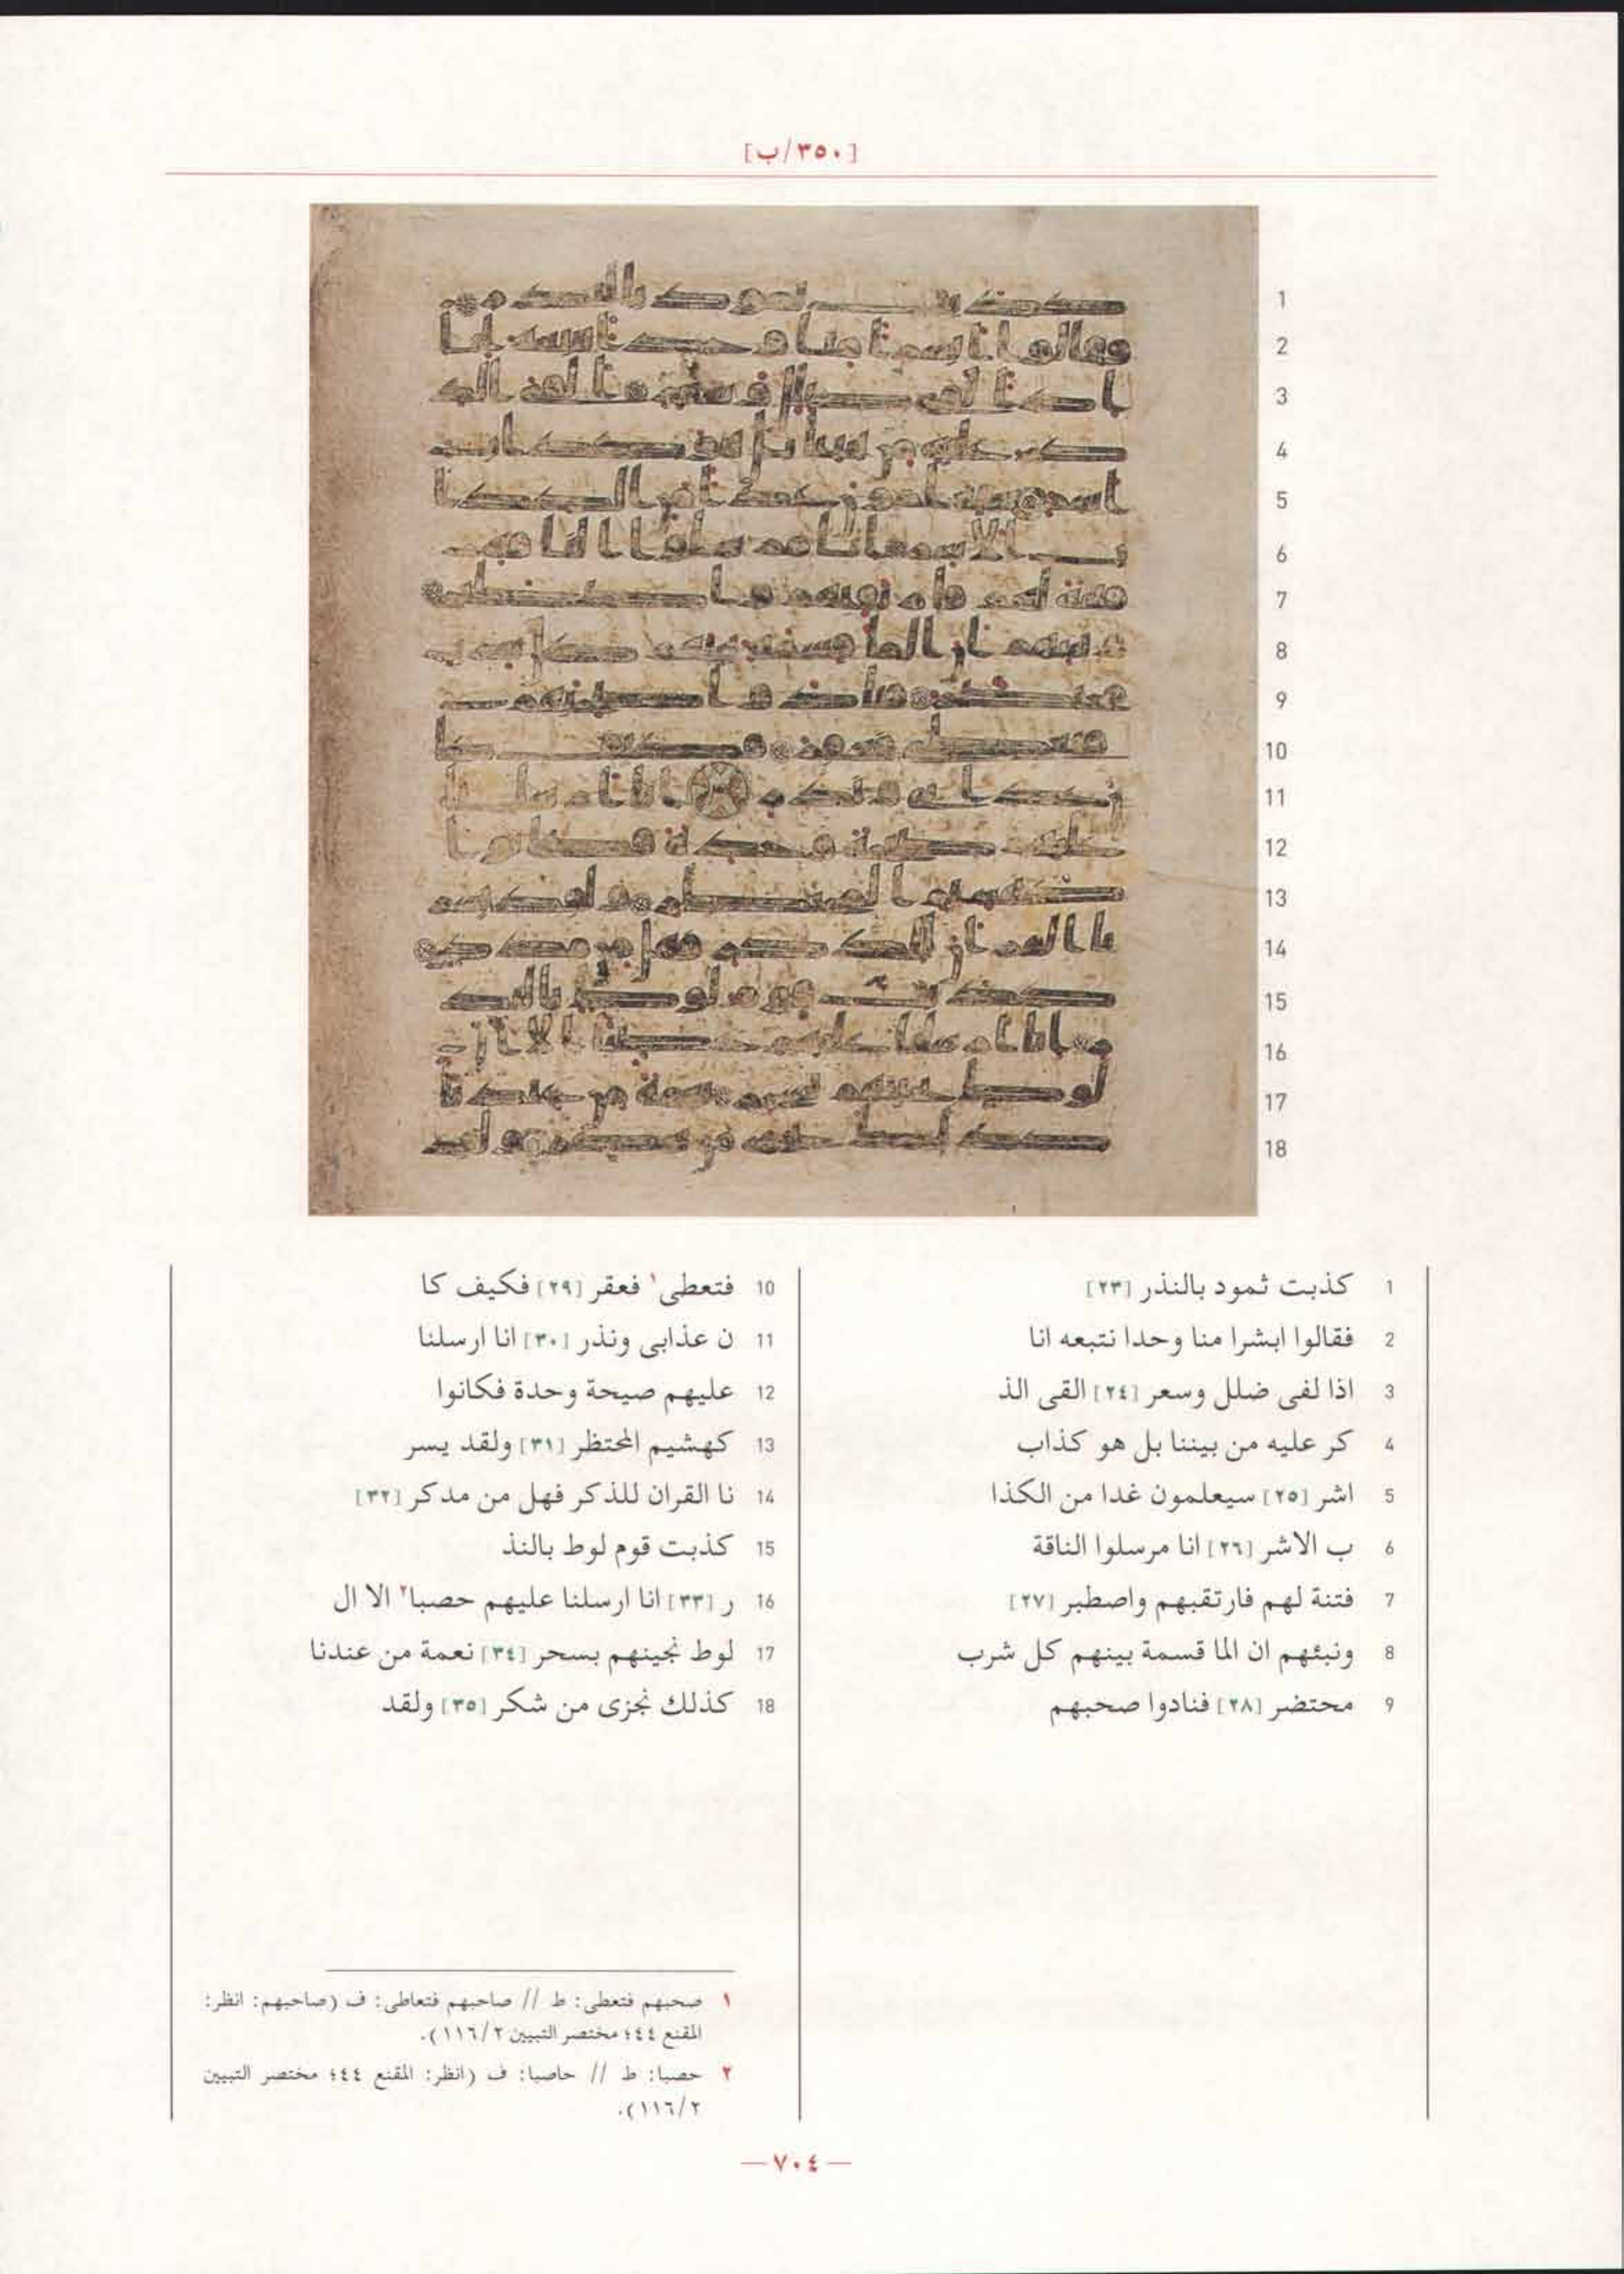 [٣٥٠/ب]
1 كذبت ثمود بالنذر [٢٣]
2 فقالوا ابشرا منا وحدا نتبعه انا
3 اذا لفى ضلل وسعر [٢٤] القى الذ
4 كر عليه من بيننا بل هو كذاب
5 اشر [٢٥] سيعلمون غدا من الكذا
6 ب الاشر [٢٦] انا مرسلوا الناقة
7 فتنة لهم فارتقبهم واصطبر [٢٧]
8 ونبئهم ان الما قسمة بينهم كل شرب
9 محتضر [٢٨] فنادوا صحبهم
10 فتعطى١ فعقر [٢٩] فكيف كا
11 ن عذابى ونذر [٣٠] انا ارسلنا
12 عليهم صيحة وحدة فكانوا
13 كهشيم المحتظر [٣١] ولقد يسر
14 نا القران للذكر فهل من مدكر [٣٢]
15 كذبت قوم لوط بالنذ
16 ر [٣٣] انا ارسلنا عليهم حصبا٢ الا ال
17 لوط نجينهم بسحر [٣٤] نعمة من عندنا
18 كذلك نجزى من شكر [٣٥] ولقد
١ صحبهم فتعطى: ط // صاحبهم فتعاطى: ف (صاحبهم: انظر:
المقنع ٤٤؛ مختصر التبيين ١١٦/٢).
٢ حصبا: ط // حاصبا: ف (انظر: المقنع ٤٤؛ مختصر التبيين
١١٦/٢).
—٧٠٤—